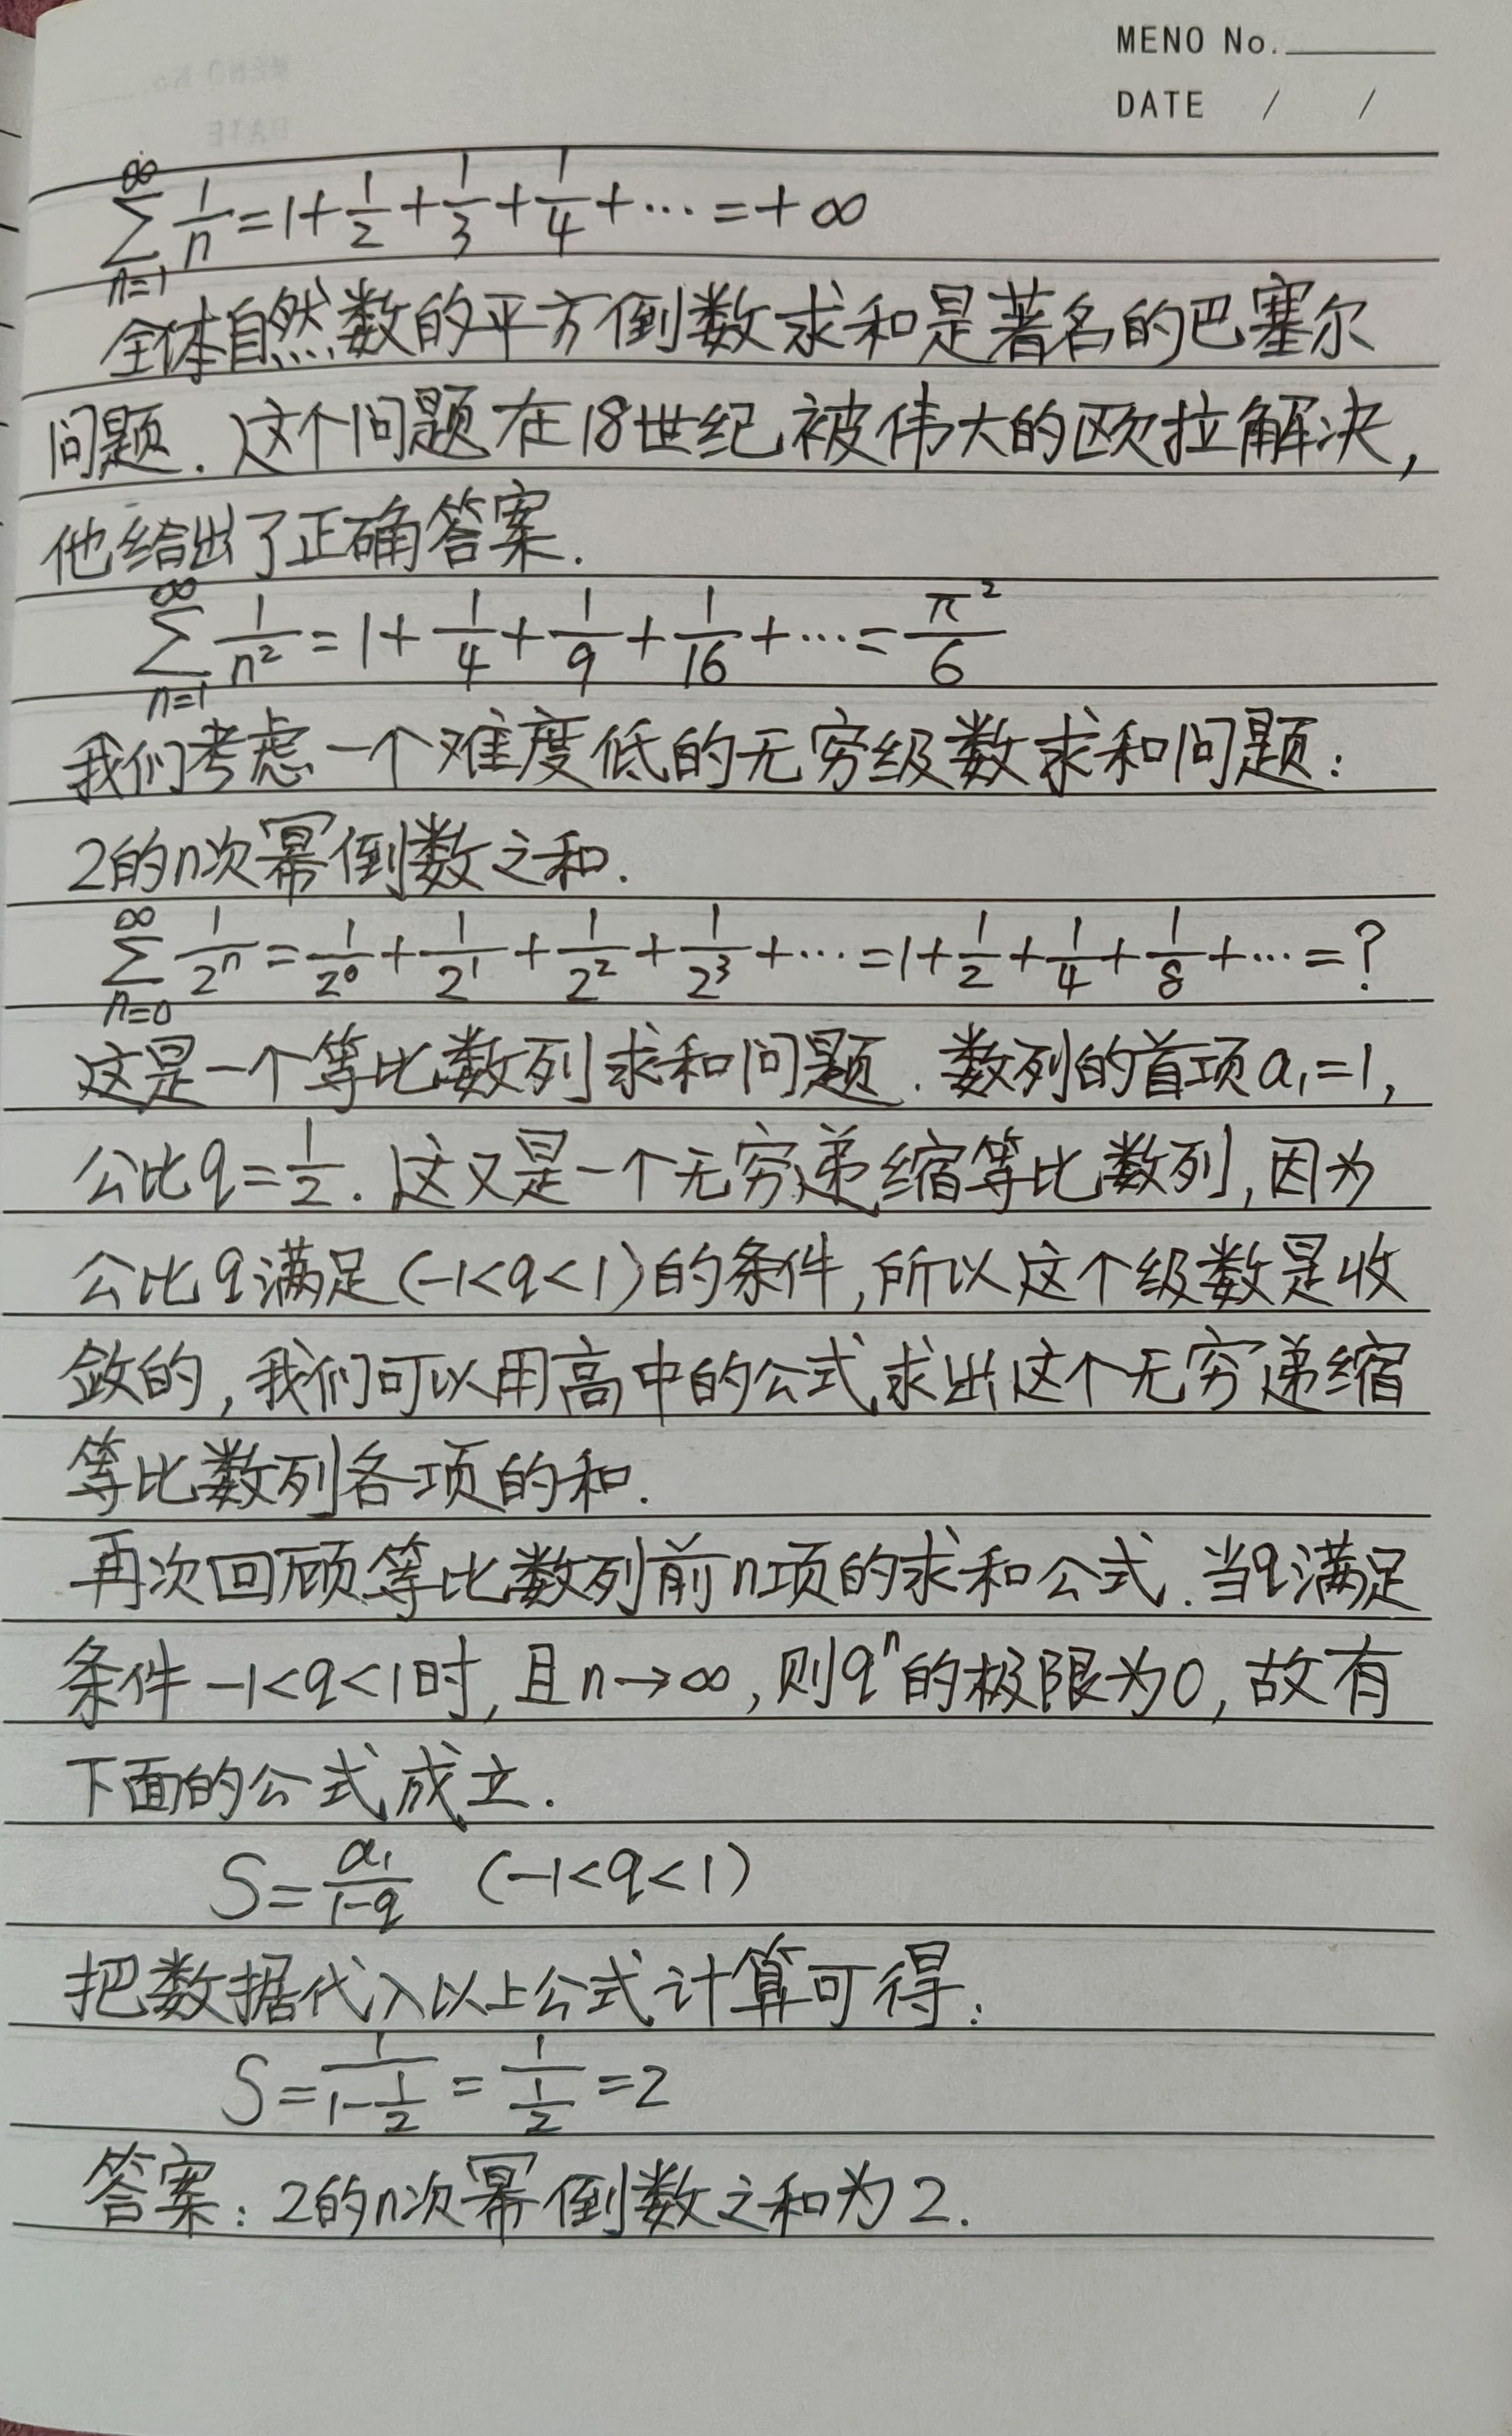 MENO No.
DATE / /
∞∑n=1 1/n = 1 + 1/2 + 1/3 + 1/4 + ⋯ = +∞
全体自然数的平方倒数求和是著名的巴塞尔
问题. 这个问题在18世纪被伟大的欧拉解决,
他给出了正确答案.
∞∑n=1 1/n² = 1 + 1/4 + 1/9 + 1/16 + ⋯ = π²/6
我们考虑一个难度低的无穷级数求和问题:
2的n次幂倒数之和.
∞∑n=0 1/2ⁿ = 1/2⁰ + 1/2¹ + 1/2² + 1/2³ + ⋯ = 1 + 1/2 + 1/4 + 1/8 + ⋯ = ?
这是一个等比数列求和问题. 数列的首项a₁=1,
公比q=1/2. 这又是一个无穷递缩等比数列, 因为
公比q满足(-1<q<1)的条件, 所以这个级数是收
敛的, 我们可以用高中的公式求出这个无穷递缩
等比数列各项的和.
再次回顾等比数列前n项的求和公式. 当q满足
条件-1<q<1时, 且n→∞, 则qⁿ的极限为0, 故有
下面的公式成立.
S = a₁/(1-q) (-1<q<1)
把数据代入以上公式计算可得:
S = 1/(1-1/2) = 1/(1/2) = 2
答案: 2的n次幂倒数之和为2.